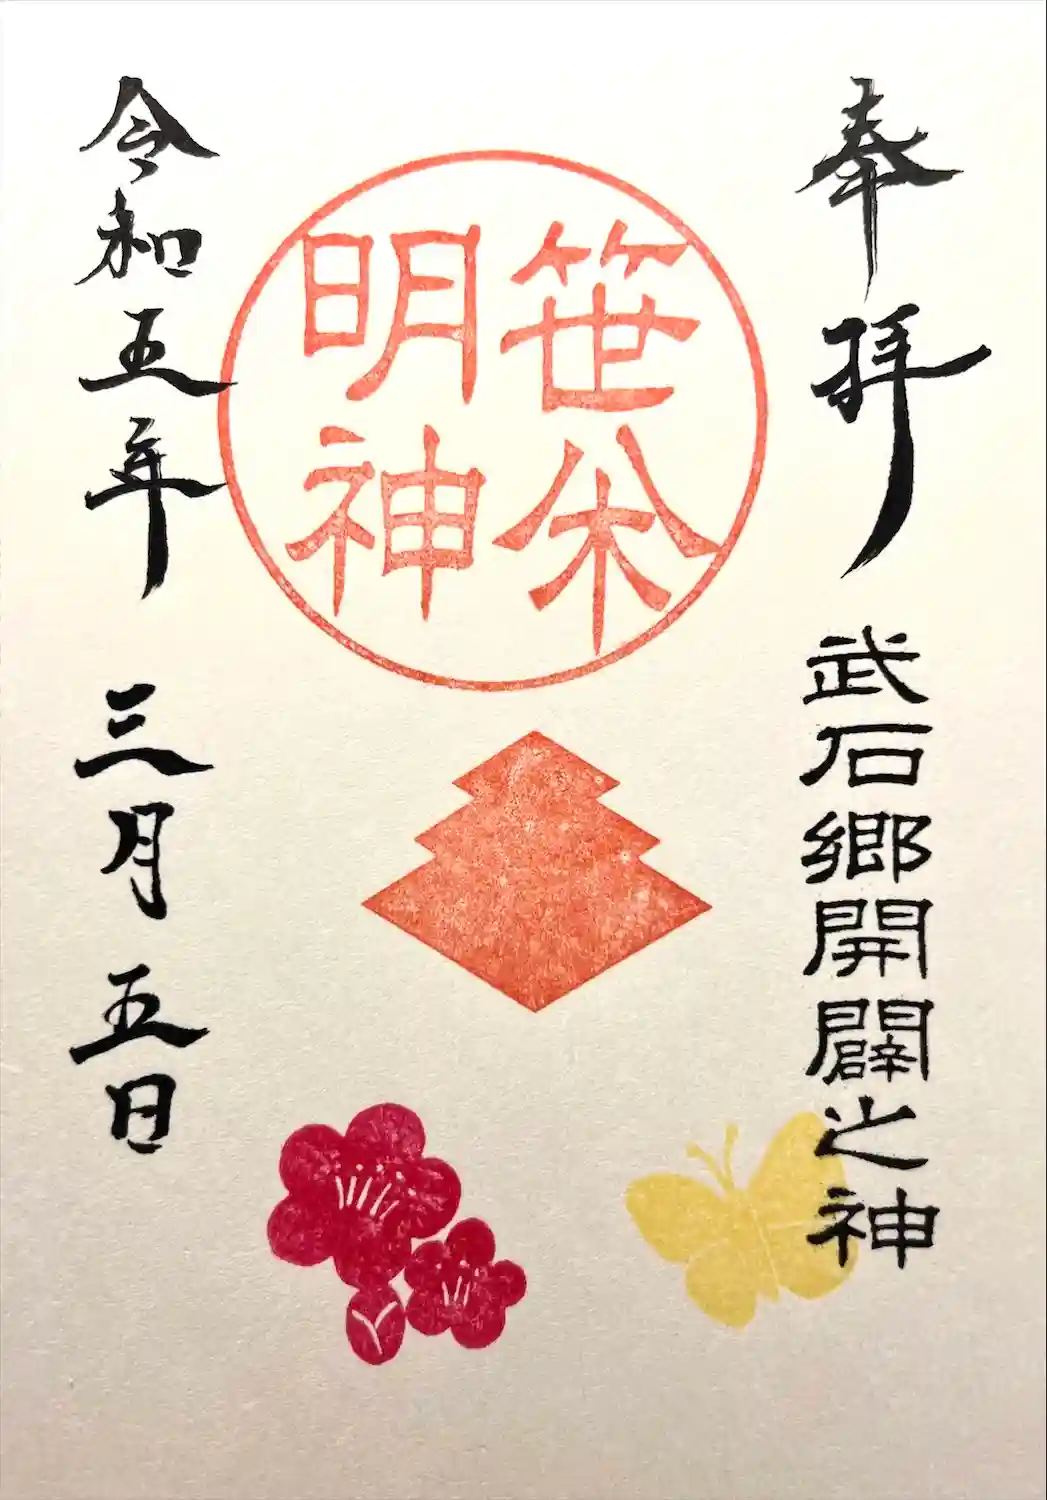 奉拝
武石郷開闢之神
笹
明神
令和五年
三月
五日